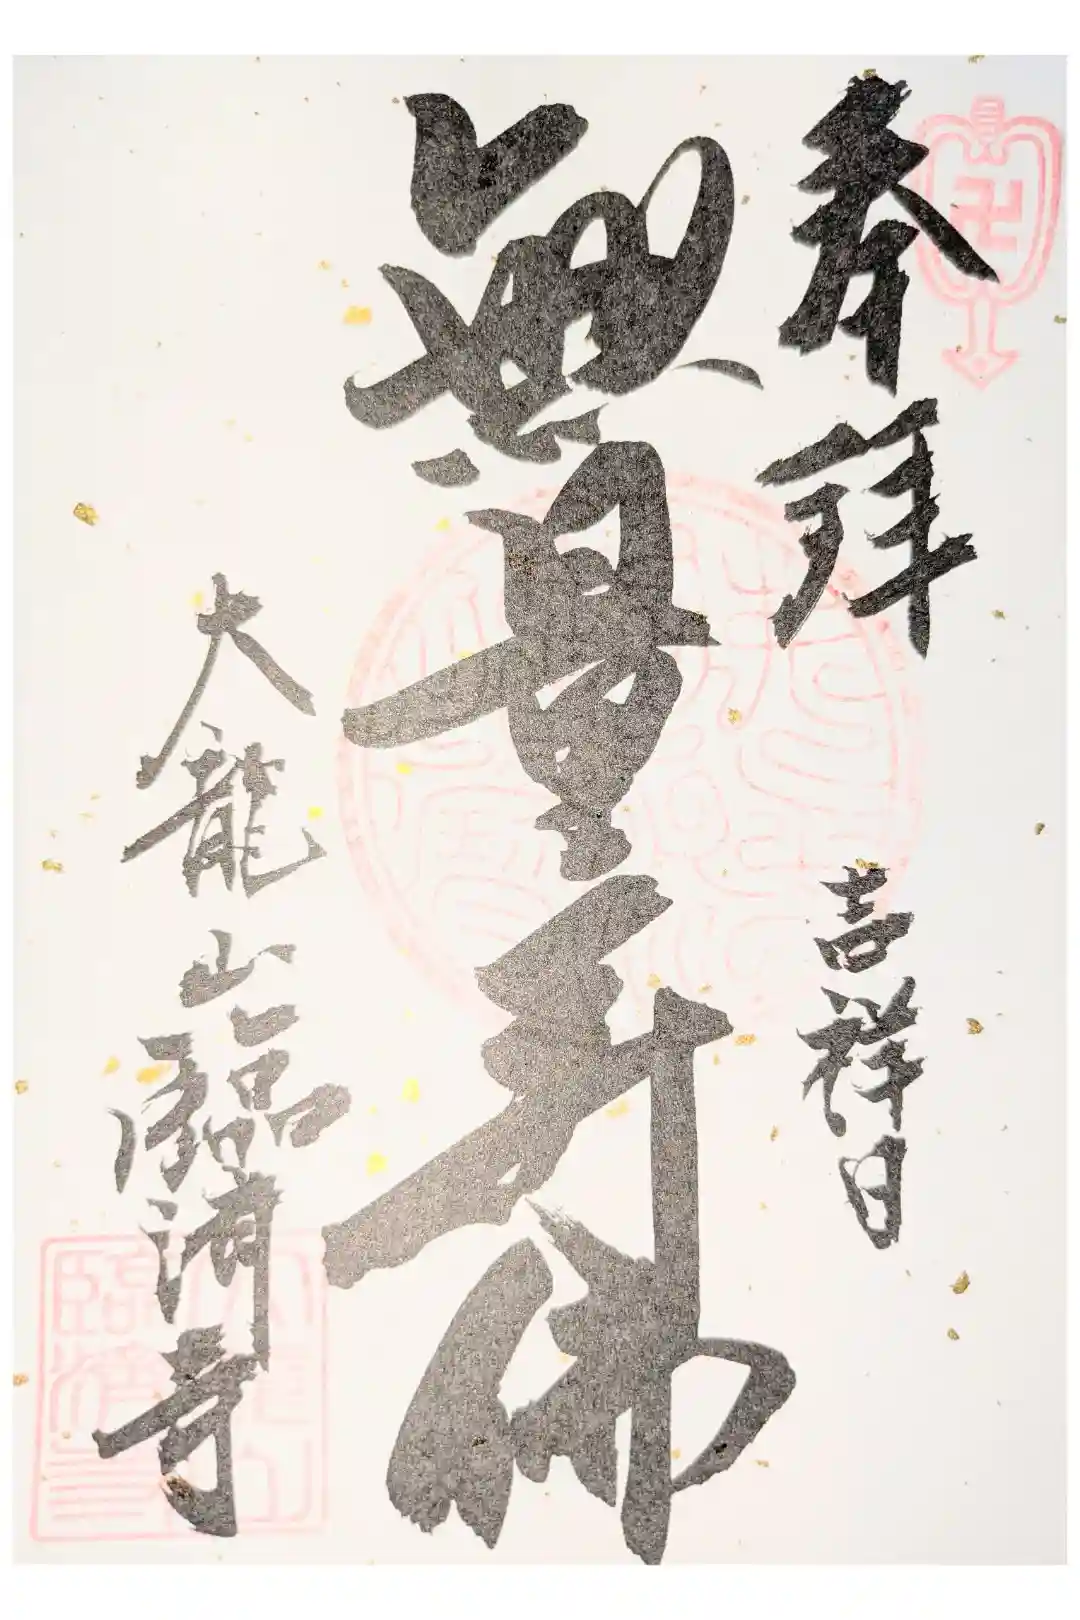 奉拜
吉祥日
無量寿佛
大龍山臨済寺